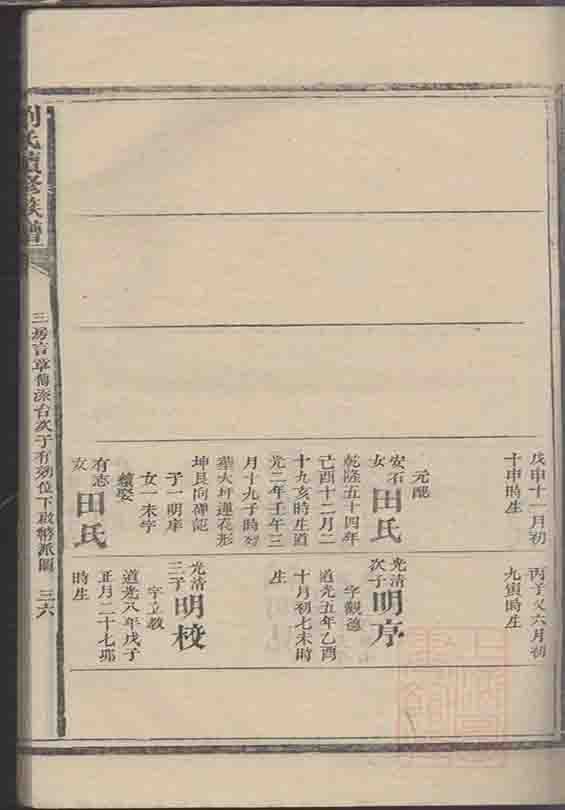 劉氏續修族譜
戊申十一月初
十申時生
元配
安石女田氏
乾隆五十四年
己酉十二月二
十九亥時生道
光二年壬午三
月十九子時歿
葬大坪蓮花形
坤艮向碑記
子一明序
女一未字
續娶
有志女田氏
丙子又六月初
九寅時生
光清次子明序
字觀德
道光五年乙酉
十月初七未時
生
光清三子明校
字立教
道光八年戊子
正月二十七
時生
三六